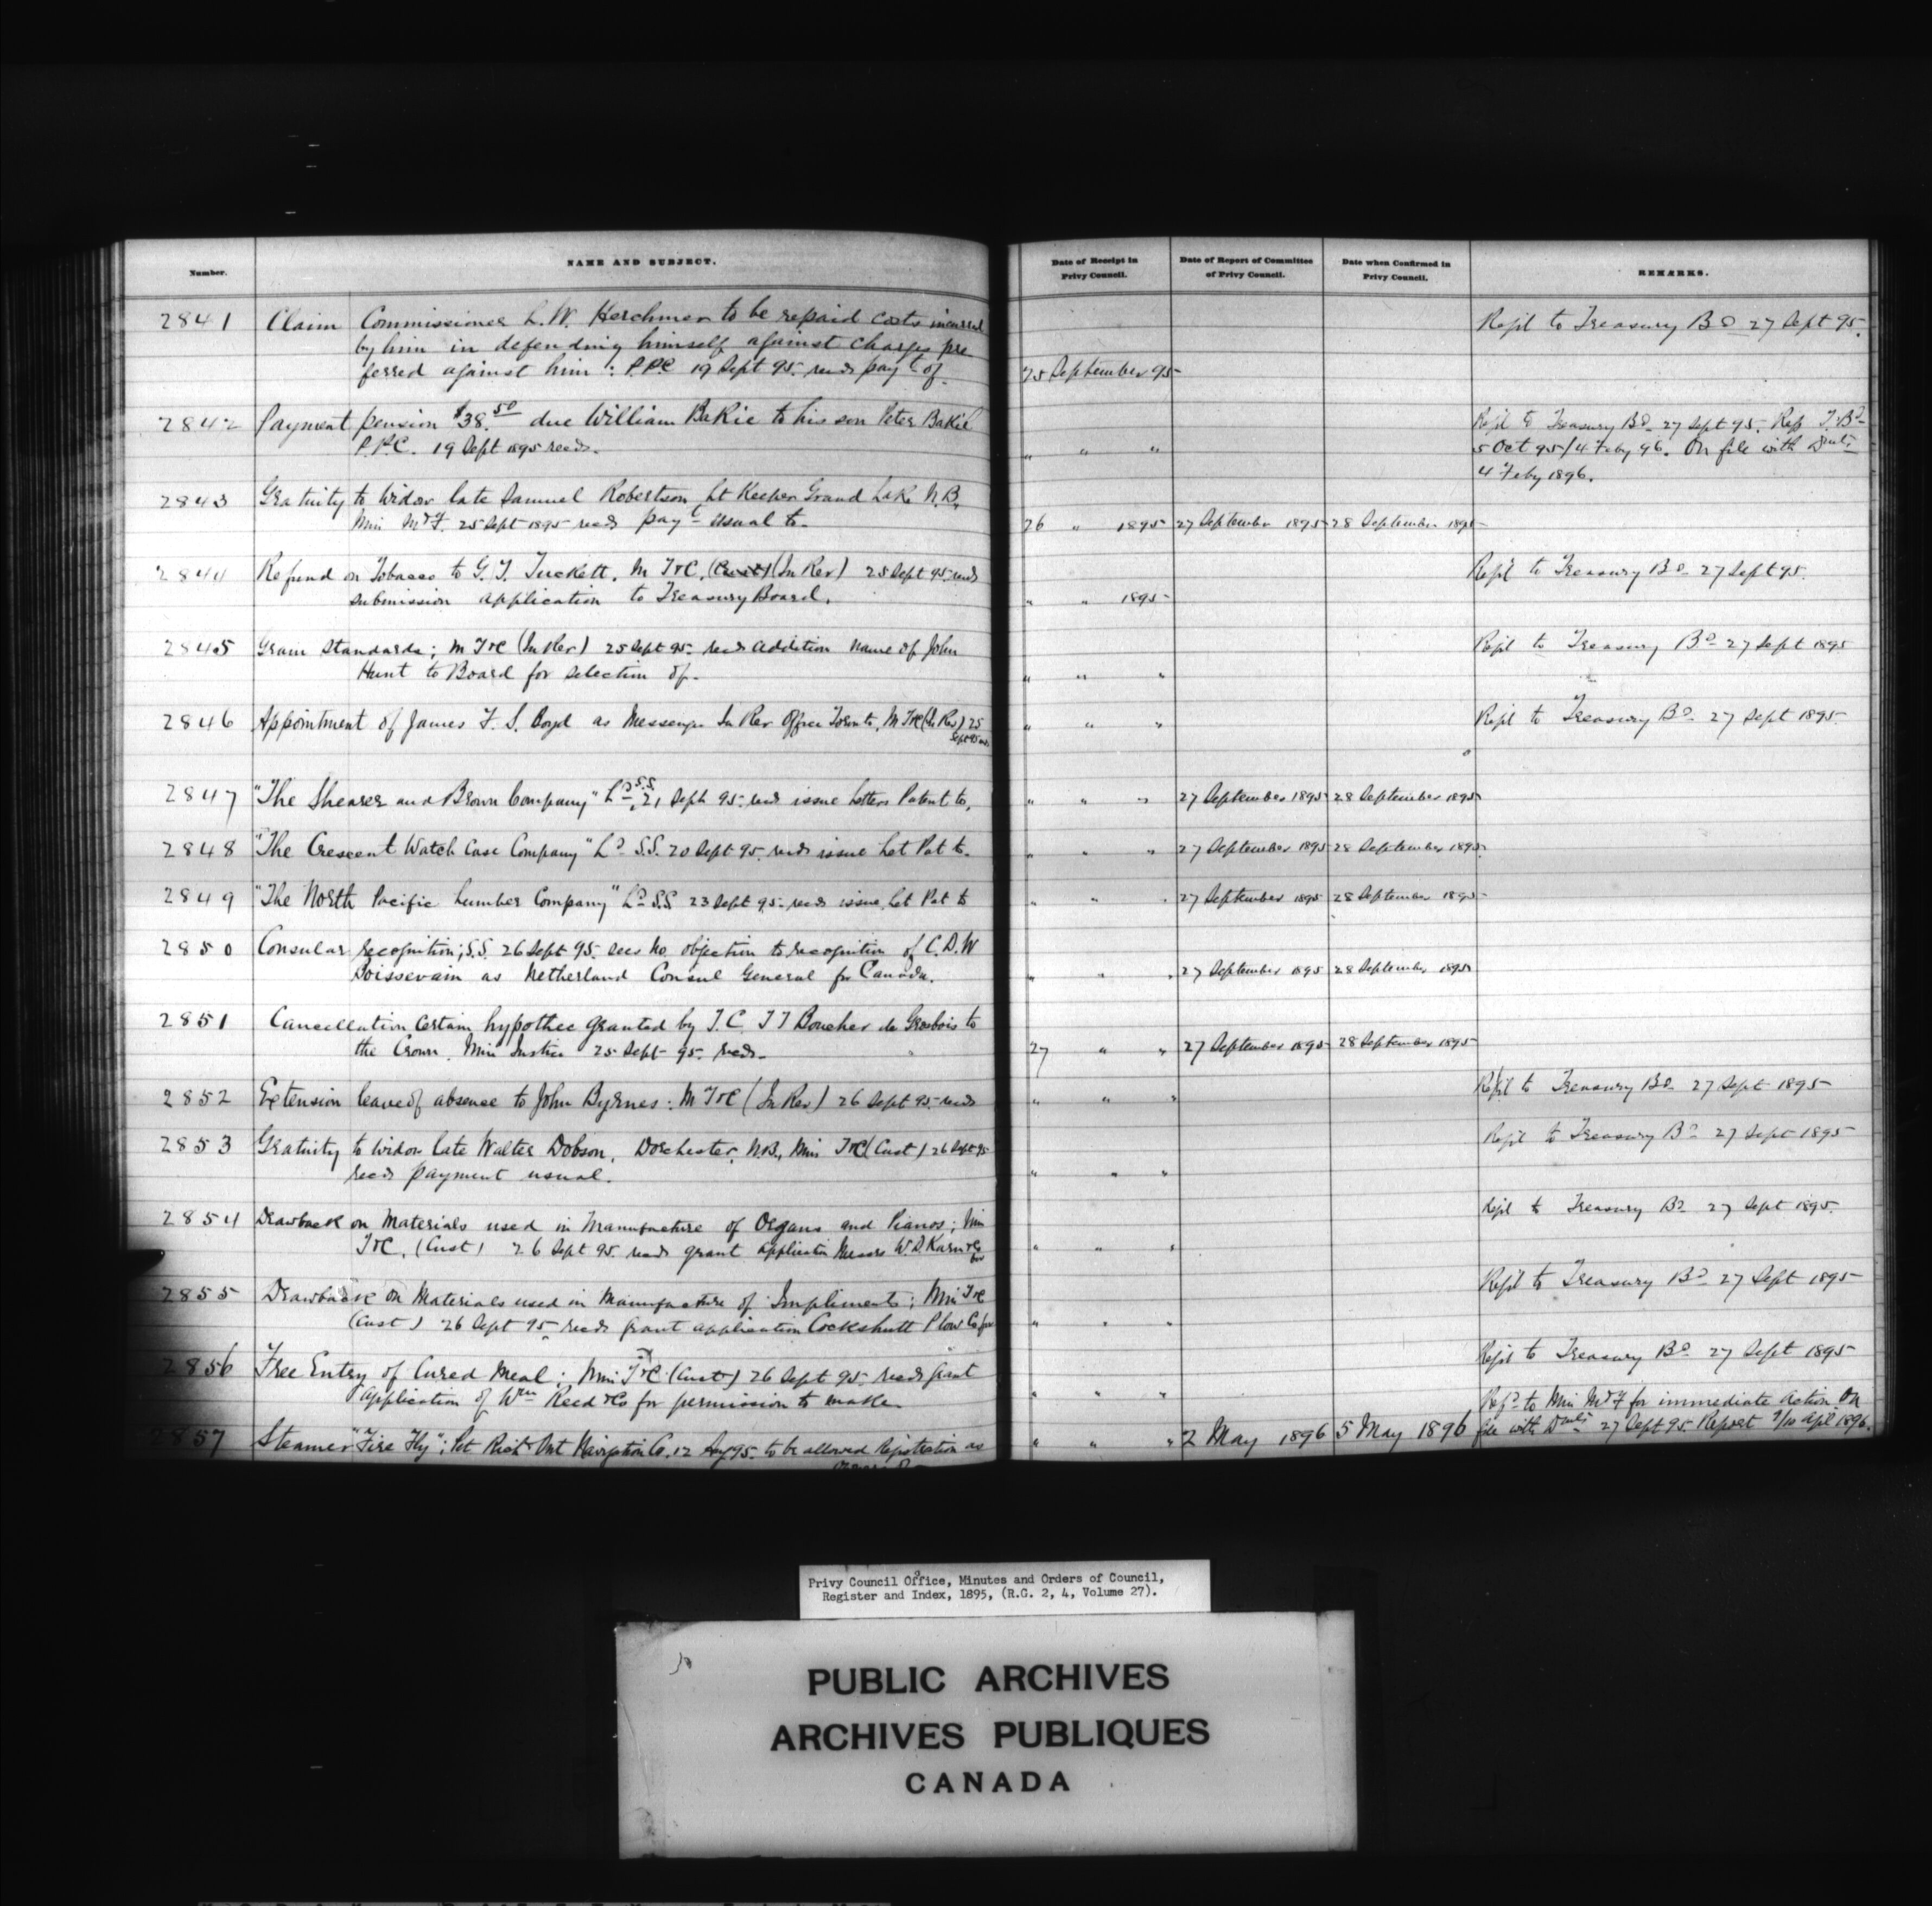 Number.
NAME AND SUBJECT.
Date of Receipt in Privy Council.
Date of Report of Committee of Privy Council.
Date when Confirmed in Privy Council.
REMARKS.
2841 Claim Commissioner L.W. Herchmer to be repaid costs incurred
by him in defending himself against charges pre
ferred against him: P.P.C 19 Sept 95. recds payt of.
25 September 95
Refd to Treasury Bd 27 Sept 95.
2842 Payment pension $38.50 due William BaKie to his son Peter BaKie
P.P.C. 19 Sept 1895 recds.
" " "
Refd to Treasury Bd 27 Sept 95. Rep T.Bd
5 Oct 95/4 Feby 96. On file with Dupli
4 Feby 1896.
2843 Gratuity to Widow late Samuel Robertson, Lt Keeper Grand Lake N.B.
Min M&F. 25 Sept 1895 recds payt usual to.
26 " 1895 27 September 1895 28 September 1895
2844 Refund on Tobacco to G.T. Tuckett. M T&C. (Cust) (In Rev) 25 Sept 95 recds
submission application to Treasury Board.
" " 1895
Refd to Treasury Bd 27 Sept 95.
2845 Grain Standards; M T&C (In Rev) 25 Sept 95. recds addition name of John
Hunt to Board for selection of.
" " "
Refd to Treasury Bd 27 Sept 1895
2846 Appointment of James F. S. Boyd as Messenger In Rev Office Toronto, M T&C (In Rev) 25
Sept 95 recds
" " "
Refd to Treasury Bd 27 Sept 1895.
2847 "The Shearer and Brown Company" Ld S.S. 21 Sept 95. recds issue Letters Patent to.
" " " 27 September 1895 28 September 1895
2848 "The Crescent Watch Case Company" Ld S.S. 20 Sept 95. recds issue Let Pat to.
" " " 27 September 1895 28 September 1895
2849 "The North Pacific Lumber Company" Ld S.S 23 Sept 95. recds issue Let Pat to
" " " 27 September 1895 28 September 1895
2850 Consular recognition; S.S. 26 Sept 95. sees no objection to recognition of C.D.W
Boissevain as Netherland Consul General for Canada.
" " " 27 September 1895 28 September 1895
2851 Cancellation certain hypothec granted by T.C. T T Boucher de Grosbois to
the Crown. Min Justice 25 Sept 95. recds.
27 " " 27 September 1895 28 September 1895
2852 Extension leave of absence to John Byrnes: M T&C (In Rev) 26 Sept 95. recds
" " "
Refd to Treasury Bd 27 Sept 1895
2853 Gratuity to widow late Walter Dobson, Dorchester, N.B., Min T&C (Cust) 26 Sept 95
recds payment usual.
" " "
Refd to Treasury Bd 27 Sept 1895
2854 Drawback on Materials used in Manufacture of Organs and Pianos; Min
T&C. (Cust) 26 Sept 95. recds grant application Messrs W.D. Karn & Co
for
" " "
Refd to Treasury Bd 27 Sept 1895.
2855 Drawback on Materials used in Manufacture of Impliments; Min T&C
(Cust) 26 Sept 95 recds grant application Cockshutt Plow Co for
" " "
Refd to Treasury Bd 27 Sept 1895
2856 Free Entry of Cured Meal; Min T&C (Cust) 26 Sept 95. recds grant
application of Wm Reed &Co for permission to make
" " "
Refd to Treasury Bd 27 Sept 1895
2857 Steamer "Fire Fly"; Pet Rich & Ont Navigation Co. 12 Aug 95. to be allowed registration as
" " " 2 May 1896 5 May 1896
Refd to Min M&F for immediate action. On
file with Dupli 27 Sept 95. Report 9/10 Apl 1896.
Privy Council Office, Minutes and Orders of Council,
Register and Index, 1895, (R.G. 2, 4, Volume 27).
PUBLIC ARCHIVES
ARCHIVES PUBLIQUES
CANADA